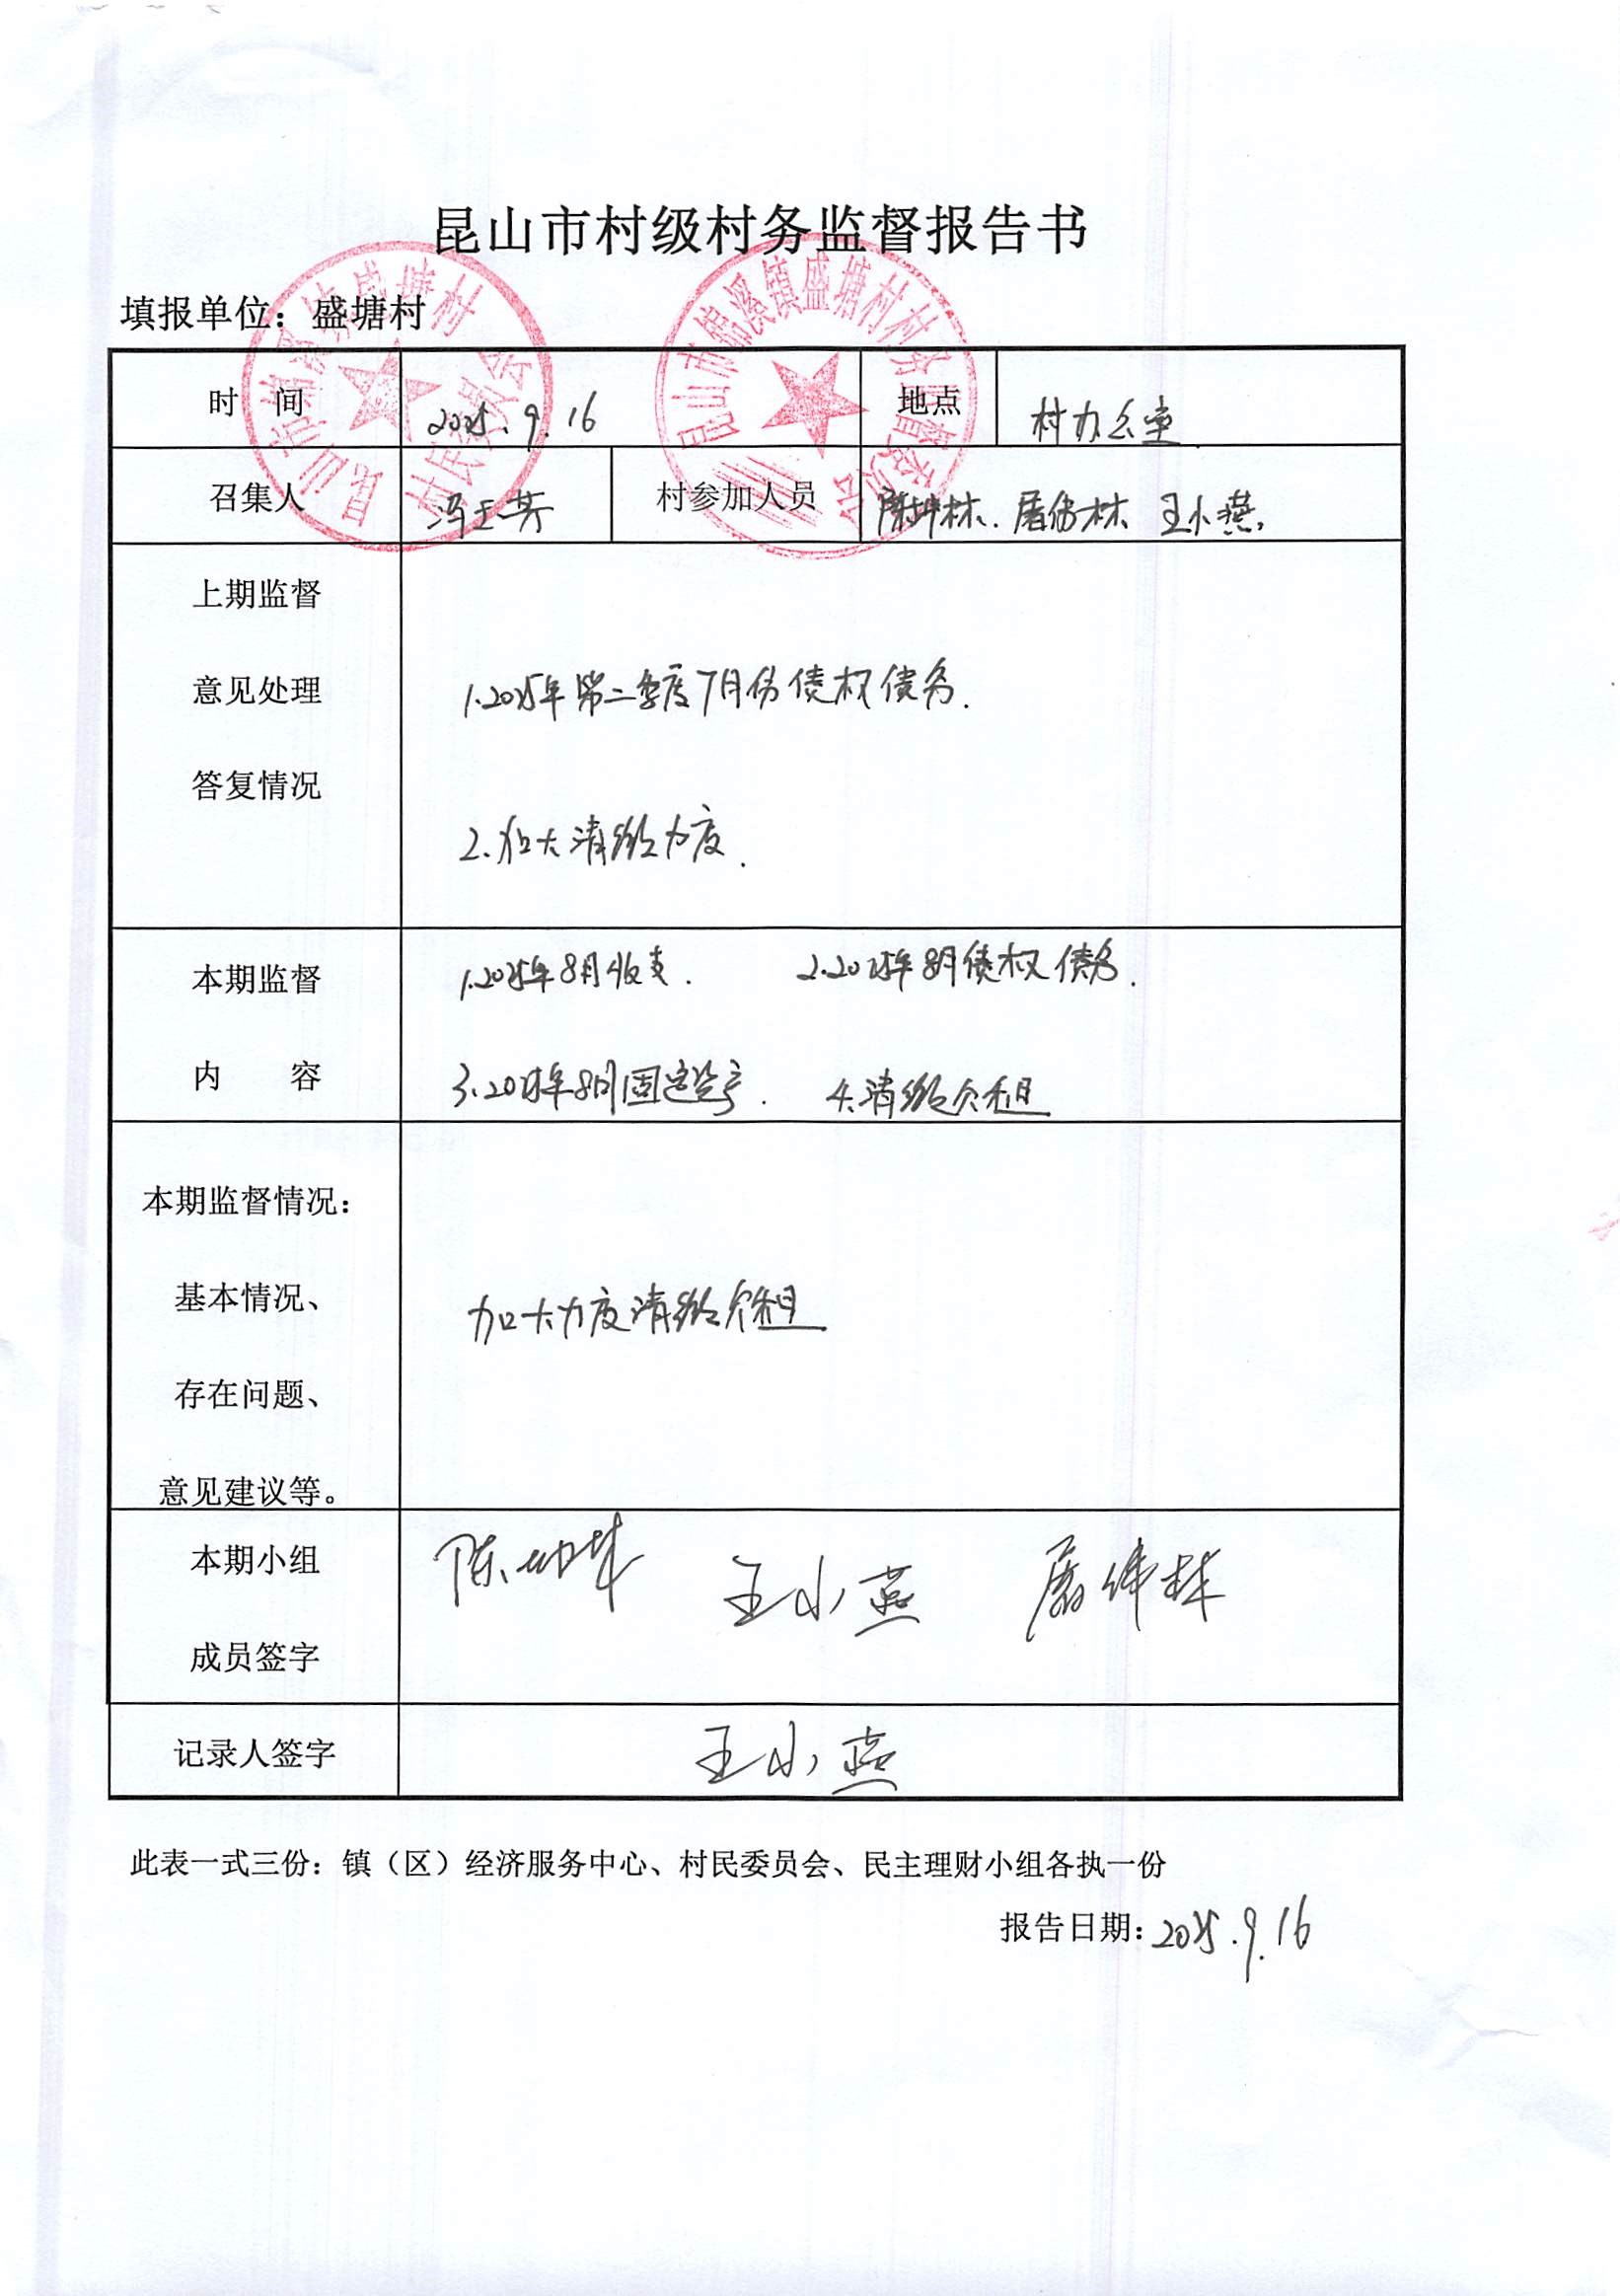 昆山市村级村务监督报告书
填报单位：盛塘村
时 间 2025.9.16 地点 村办公室
召集人 冯正芳 村参加人员 陈坤林、屠伟林 王小燕
上期监督
意见处理 1.2025年第二季度7月份债权债务.
答复情况
2.加大清缴力度.
本期监督 1.2025年8月收支. 2.2025年8月债权债务.
内 容 3.2025年8月固定资产. 4.清缴欠租
本期监督情况：
基本情况、 加大力度清缴欠租
存在问题、
意见建议等。
本期小组 王小燕 屠伟林
成员签字
记录人签字 王小燕
此表一式三份：镇（区）经济服务中心、村民委员会、民主理财小组各执一份
报告日期：2025.9.16
昆山市锦溪镇盛塘村村民委员会
昆山市锦溪镇盛塘村村务监督委员会